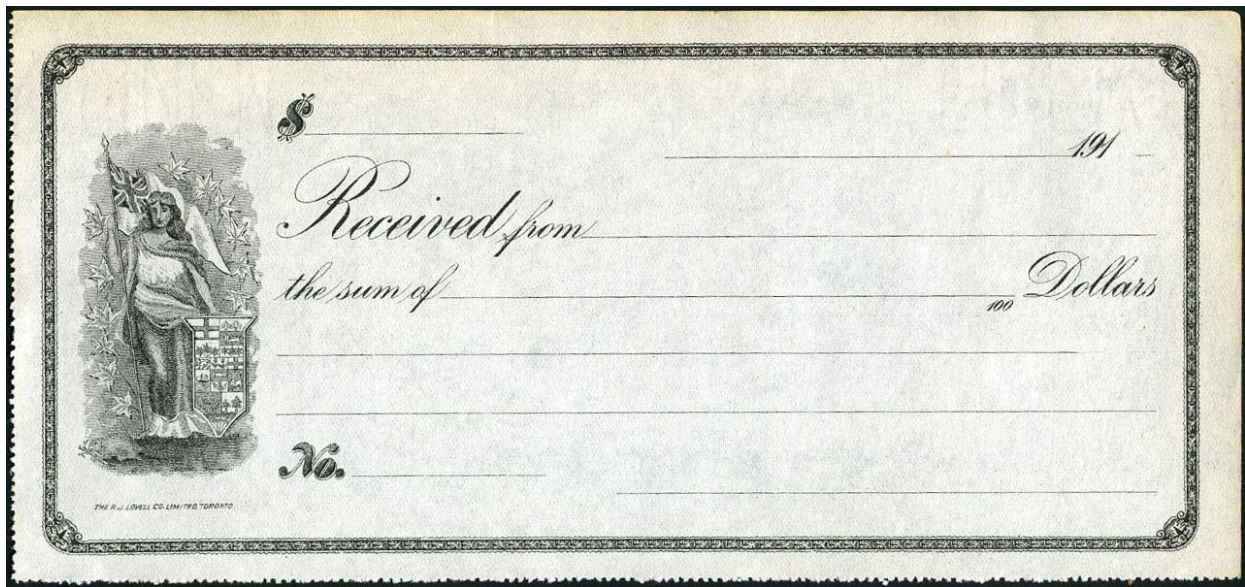 $
191
Received from
the sum of Dollars
100
No.
THE R.J. LOVELL CO. LIMITED, TORONTO